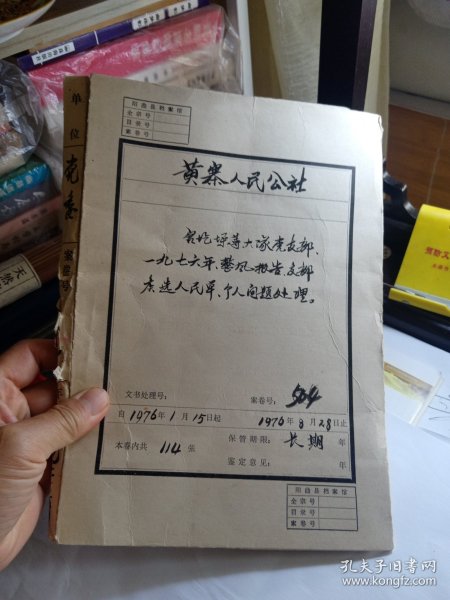 阳曲县档案馆
全宗号
目录号
案卷号
单位
党委
案卷号
黄寨人民公社
大队党支部、
一九七六年整风报告、支部
人民革、个人问题处理。
文书处理号：
案卷号：504
自1976年1月15日起
1976年8月28日止
本卷内共 114 张
保管期限：长期 年
鉴定意见： 年
阳曲县档案馆
全宗号
目录号
案卷号
天然
预防艾
孔夫子旧书网
www.kongfz.com